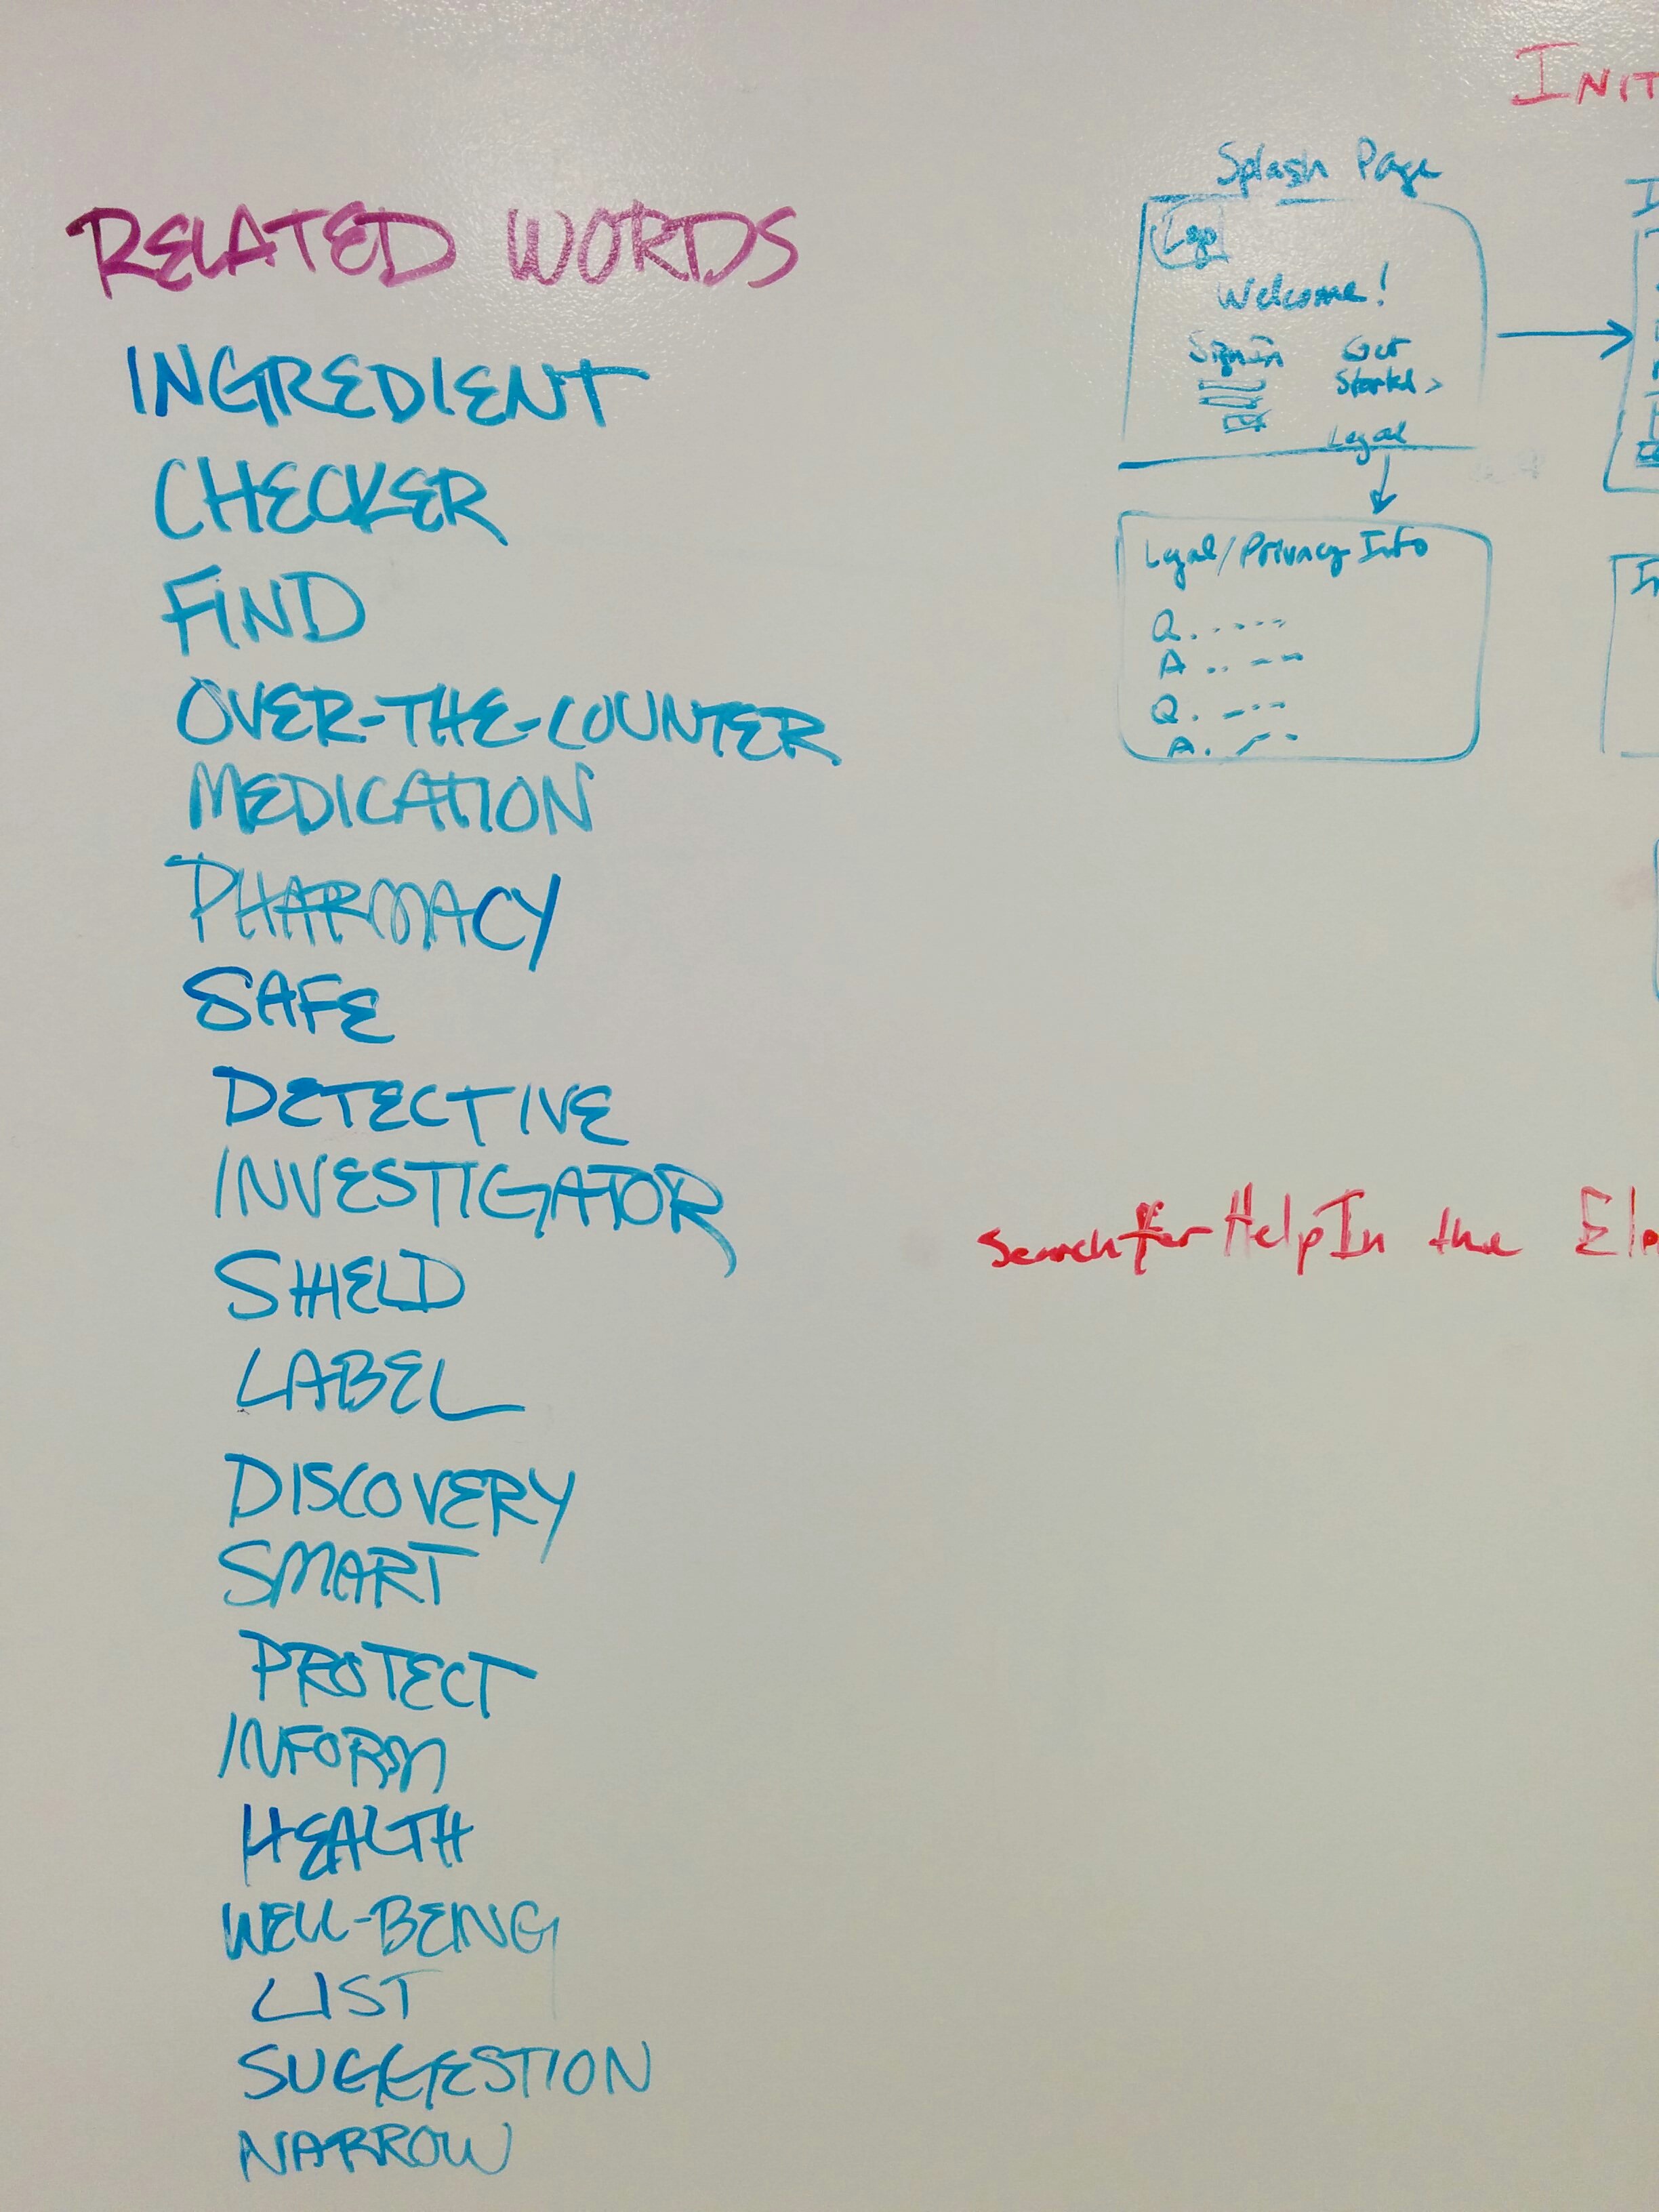 RELATED WORDS
INGREDIENT
CHECKER
FIND
OVER-THE-COUNTER
MEDICATION
PHARMACY
SAFE
DETECTIVE
INVESTIGATOR
SHIELD
LABEL
DISCOVERY
SMART
PROTECT
INFORM
HEALTH
WELL-BEING
LIST
SUGGESTION
NARROW
INIT
Splash Page
Logo
Welcome!
Sign In
Get
Started >
Legal
Legal/Privacy Info
Q.
A
Q.
A.
Search for Help In the